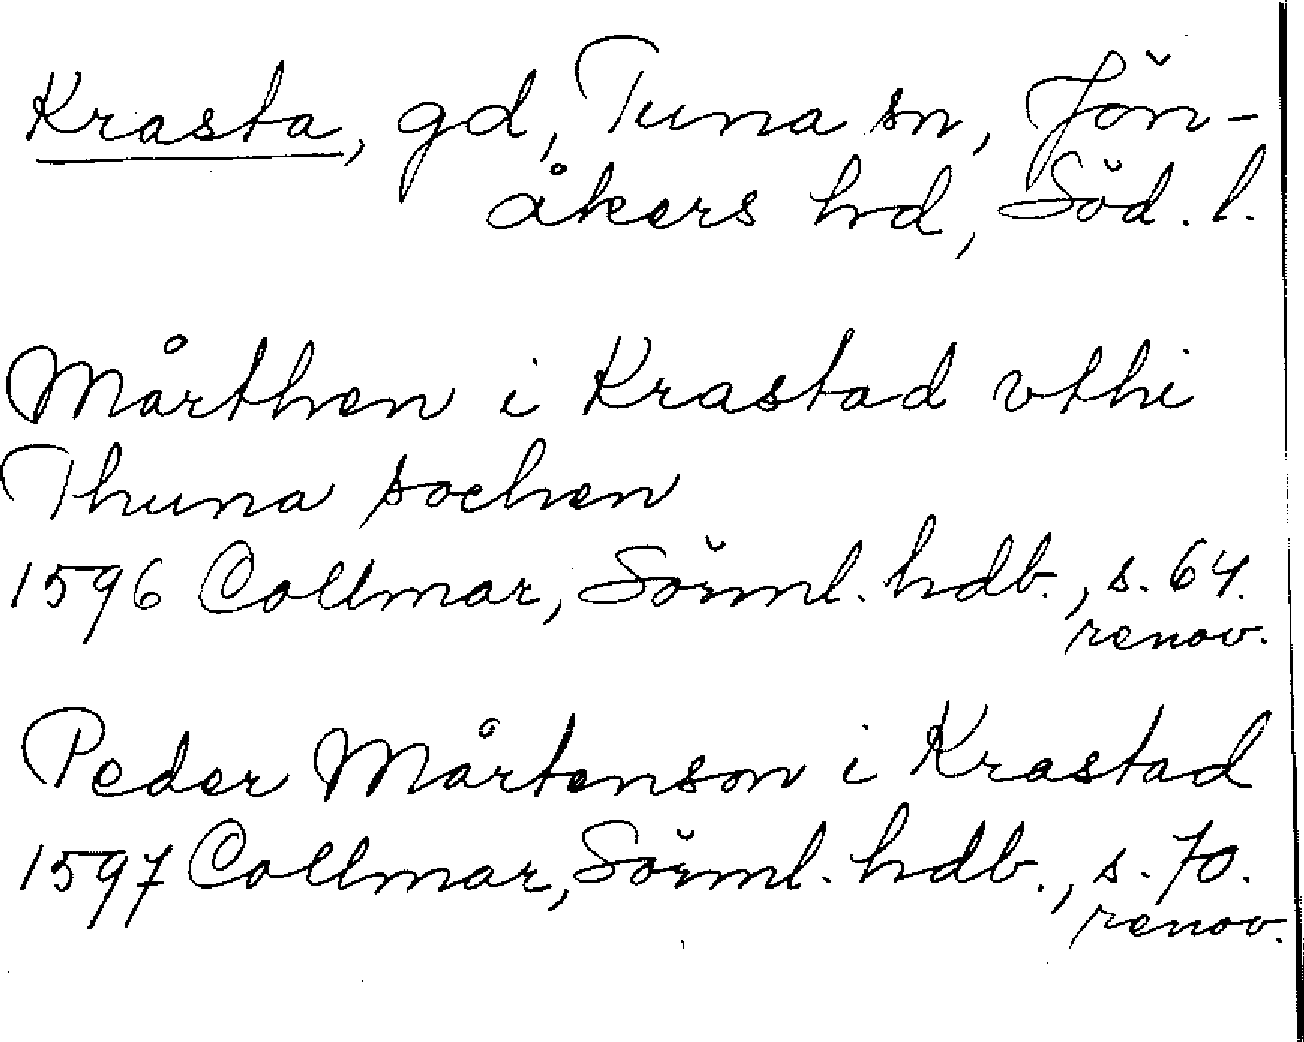 Krasta, gd, Tuna sn, Jön-
åkers hd, Söd. l.
Mårthen i Krastad vthi
Thuna sochen
1596 Collmar, Sörml. hdb., s. 64.
renov.
Peder Mårtenson i Krastad
1597 Collmar, Sörml. hdb., s. 70.
renov.